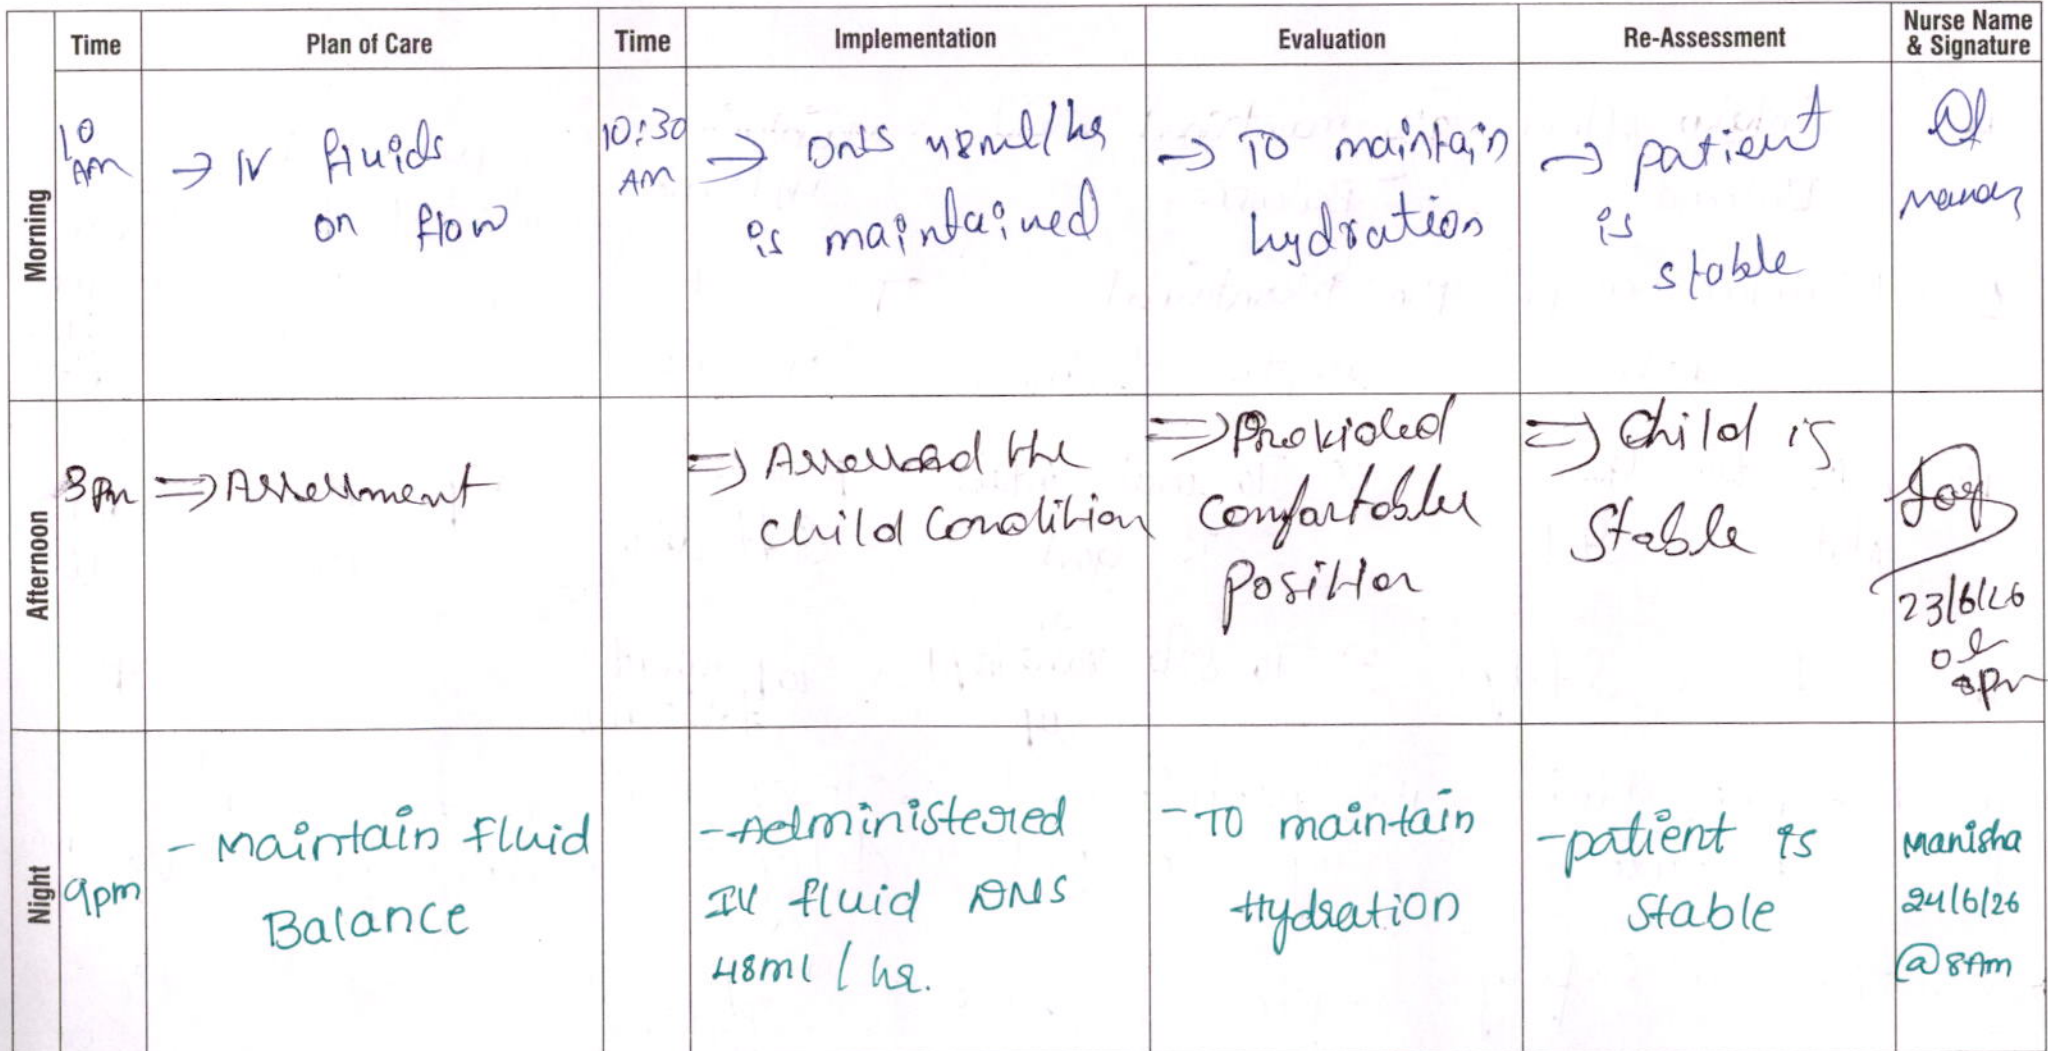 Time Plan of Care Time Implementation Evaluation Re-Assessment Nurse Name
& Signature
Morning
10
AM
→ IV fluids
on flow
10:30
AM
→ DNS 48ml/hr
is maintained
→ TO maintain
hydration
→ patient
is
stable
Afternoon
3 Pm
⇒ Assessment
⇒ Assessed the
child condition
⇒ Provided
Comfortable
Position
⇒ Child is
Stable
23/6/26
8pm
Night
9pm
- Maintain fluid
Balance
- Administered
IV fluid DNS
48ml / hr.
- TO maintain
Hydration
- patient is
Stable
Manisha
24/6/26
@ 8Am